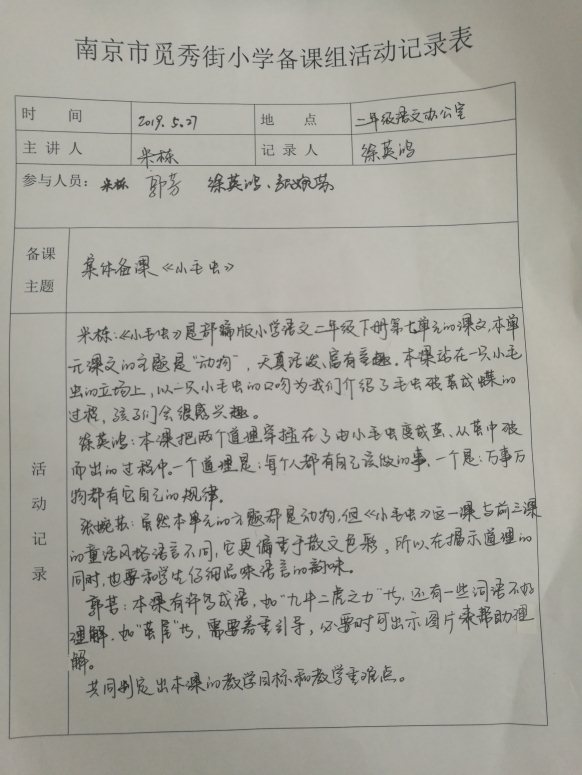 南京市觅秀街小学备课组活动记录表
时 间 2019.5.27 地 点 二年级语文办公室
主讲人 米栋 记录人 徐英鸿
参与人员： 米栋 郭芳 徐英鸿、张婉芸
备课主题 集体备课《小毛虫》
活动记录
米栋：《小毛虫》是部编版小学语文二年级下册第七单元的课文，本单
元课文的主题是“动物”，天真活泼、富有童趣。本课站在一只小毛
虫的立场上，以一只小毛虫的口吻为我们介绍了毛虫破茧成蝶的
过程，孩子们会很感兴趣。
徐英鸿：本课把两个道理穿插在了由小毛虫变成茧、从茧中破
而出的过程中。一个道理是：每个人都有自己该做的事，一个是：万事万
物都有它自己的规律。
张婉芸：虽然本单元的主题都是动物，但《小毛虫》这一课与前三课
的童话风格语言不同，它更偏重于散文色彩，所以在揭示道理的
同时，也要和学生仔细品味语言的韵味。
郭芳：本课有许多成语，如“九牛二虎之力”等，还有一些词语不好
理解，如“茧尾”等，需要着重引导，必要时可出示图片来帮助理
解。
共同制定出本课的教学目标和教学重难点。